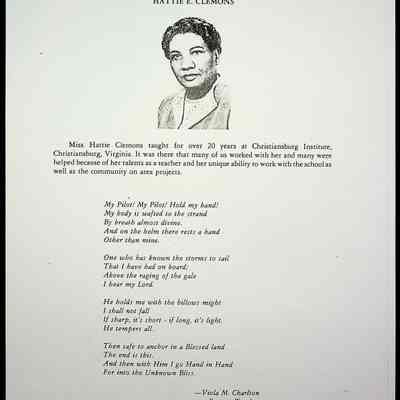 HATTIE E. CLEMONS
Miss Hattie Clemons taught for over 20 years at Christiansburg Institute,
Christiansburg, Virginia. It was there that many of us worked with her and many were
helped because of her talents as a teacher and her unique ability to work with the school as
well as the community on area projects.
My Pilot! My Pilot! Hold my hand!
My body is wafted to the strand
By breath almost divine.
And on the helm there rests a hand
Other than mine.
One who has known the storms to sail
That I have had on board;
Above the raging of the gale
I hear my Lord.
He holds me with the billows might
I shall not fall
If sharp, it's short - if long, it's light.
He tempers all.
Then safe to anchor in a Blessed land
The end is this.
And then with Him I go Hand in Hand
For into the Unknown Bliss.
—Viola M. Charlton